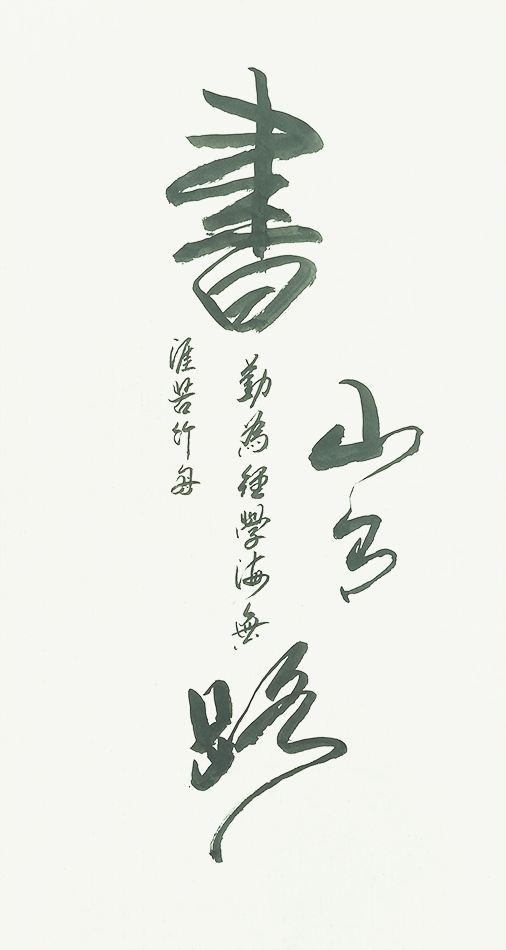 書
山有
路
勤為徑學海無
涯苦作舟